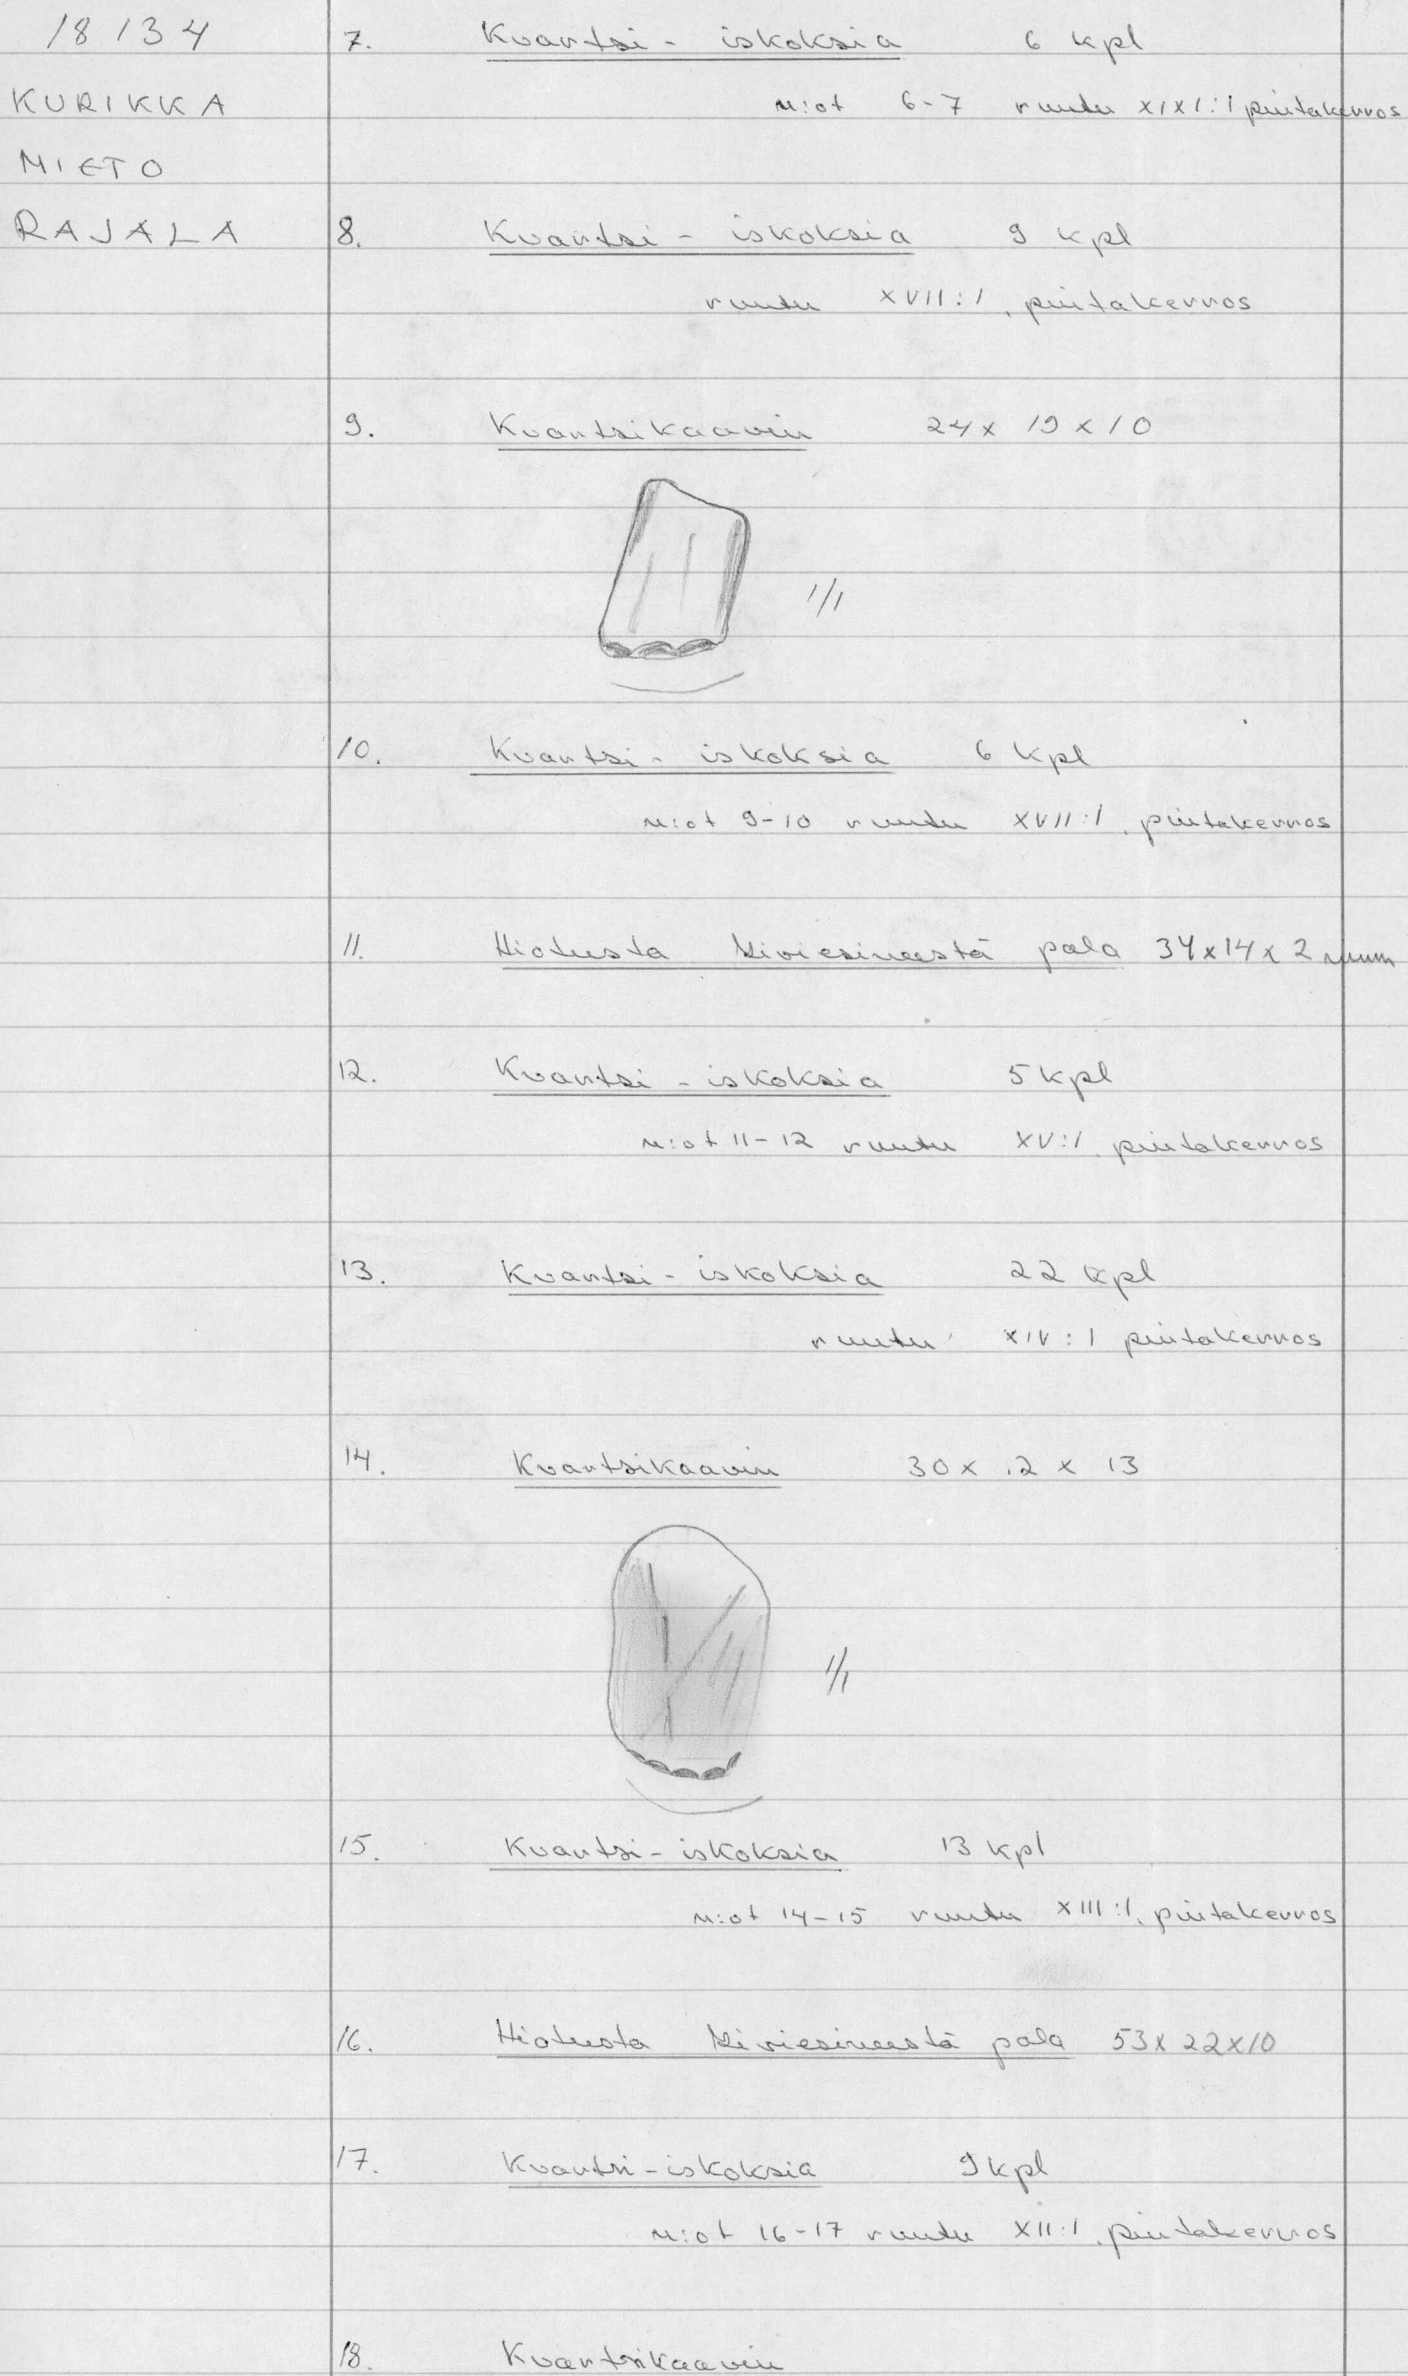 18134
KURIKKA
MIETO
RAJALA
7. Kvartsi-iskoksia 6 kpl
n:ot 6-7 ruutu XIXI:1 pintakerros
8. Kvartsi-iskoksia 9 kpl
ruutu XVII:1, pintakerros
9. Kvartsikaavin 24 x 19 x 10
1/1
10. Kvartsi-iskoksia 6 kpl
n:ot 9-10 ruutu XVII:1, pintakerros
11. Hiotusta kiviesineestä pala 34x14x2 mm
12. Kvartsi-iskoksia 5 kpl
n:ot 11-12 ruutu XV:1, pintakerros
13. Kvartsi-iskoksia 22 kpl
ruutu XIV:1 pintakerros
14. Kvartsikaavin 30 x 12 x 13
1/1
15. Kvartsi-iskoksia 13 kpl
n:ot 14-15 ruutu XIII:1, pintakerros
16. Hiotusta kiviesineestä pala 53x22x10
17. Kvartsi-iskoksia 9 kpl
n:ot 16-17 ruutu XII:1, pintakerros
18. Kvartsikaavin